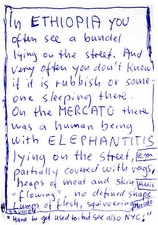 In ETHIOPIA you
often see a bundel
lying on the street. And
very often you don't know
if it is rubbish or some-
one sleeping there.
On the MERCATO there
was a human being
with ELEPHANTITIS
lying on the street,
partially covered with rags,
heaps of meat and skin
"flowing", no defined shape
lumps of flesh, squivering
"Hard to get used to had see also NYC!"